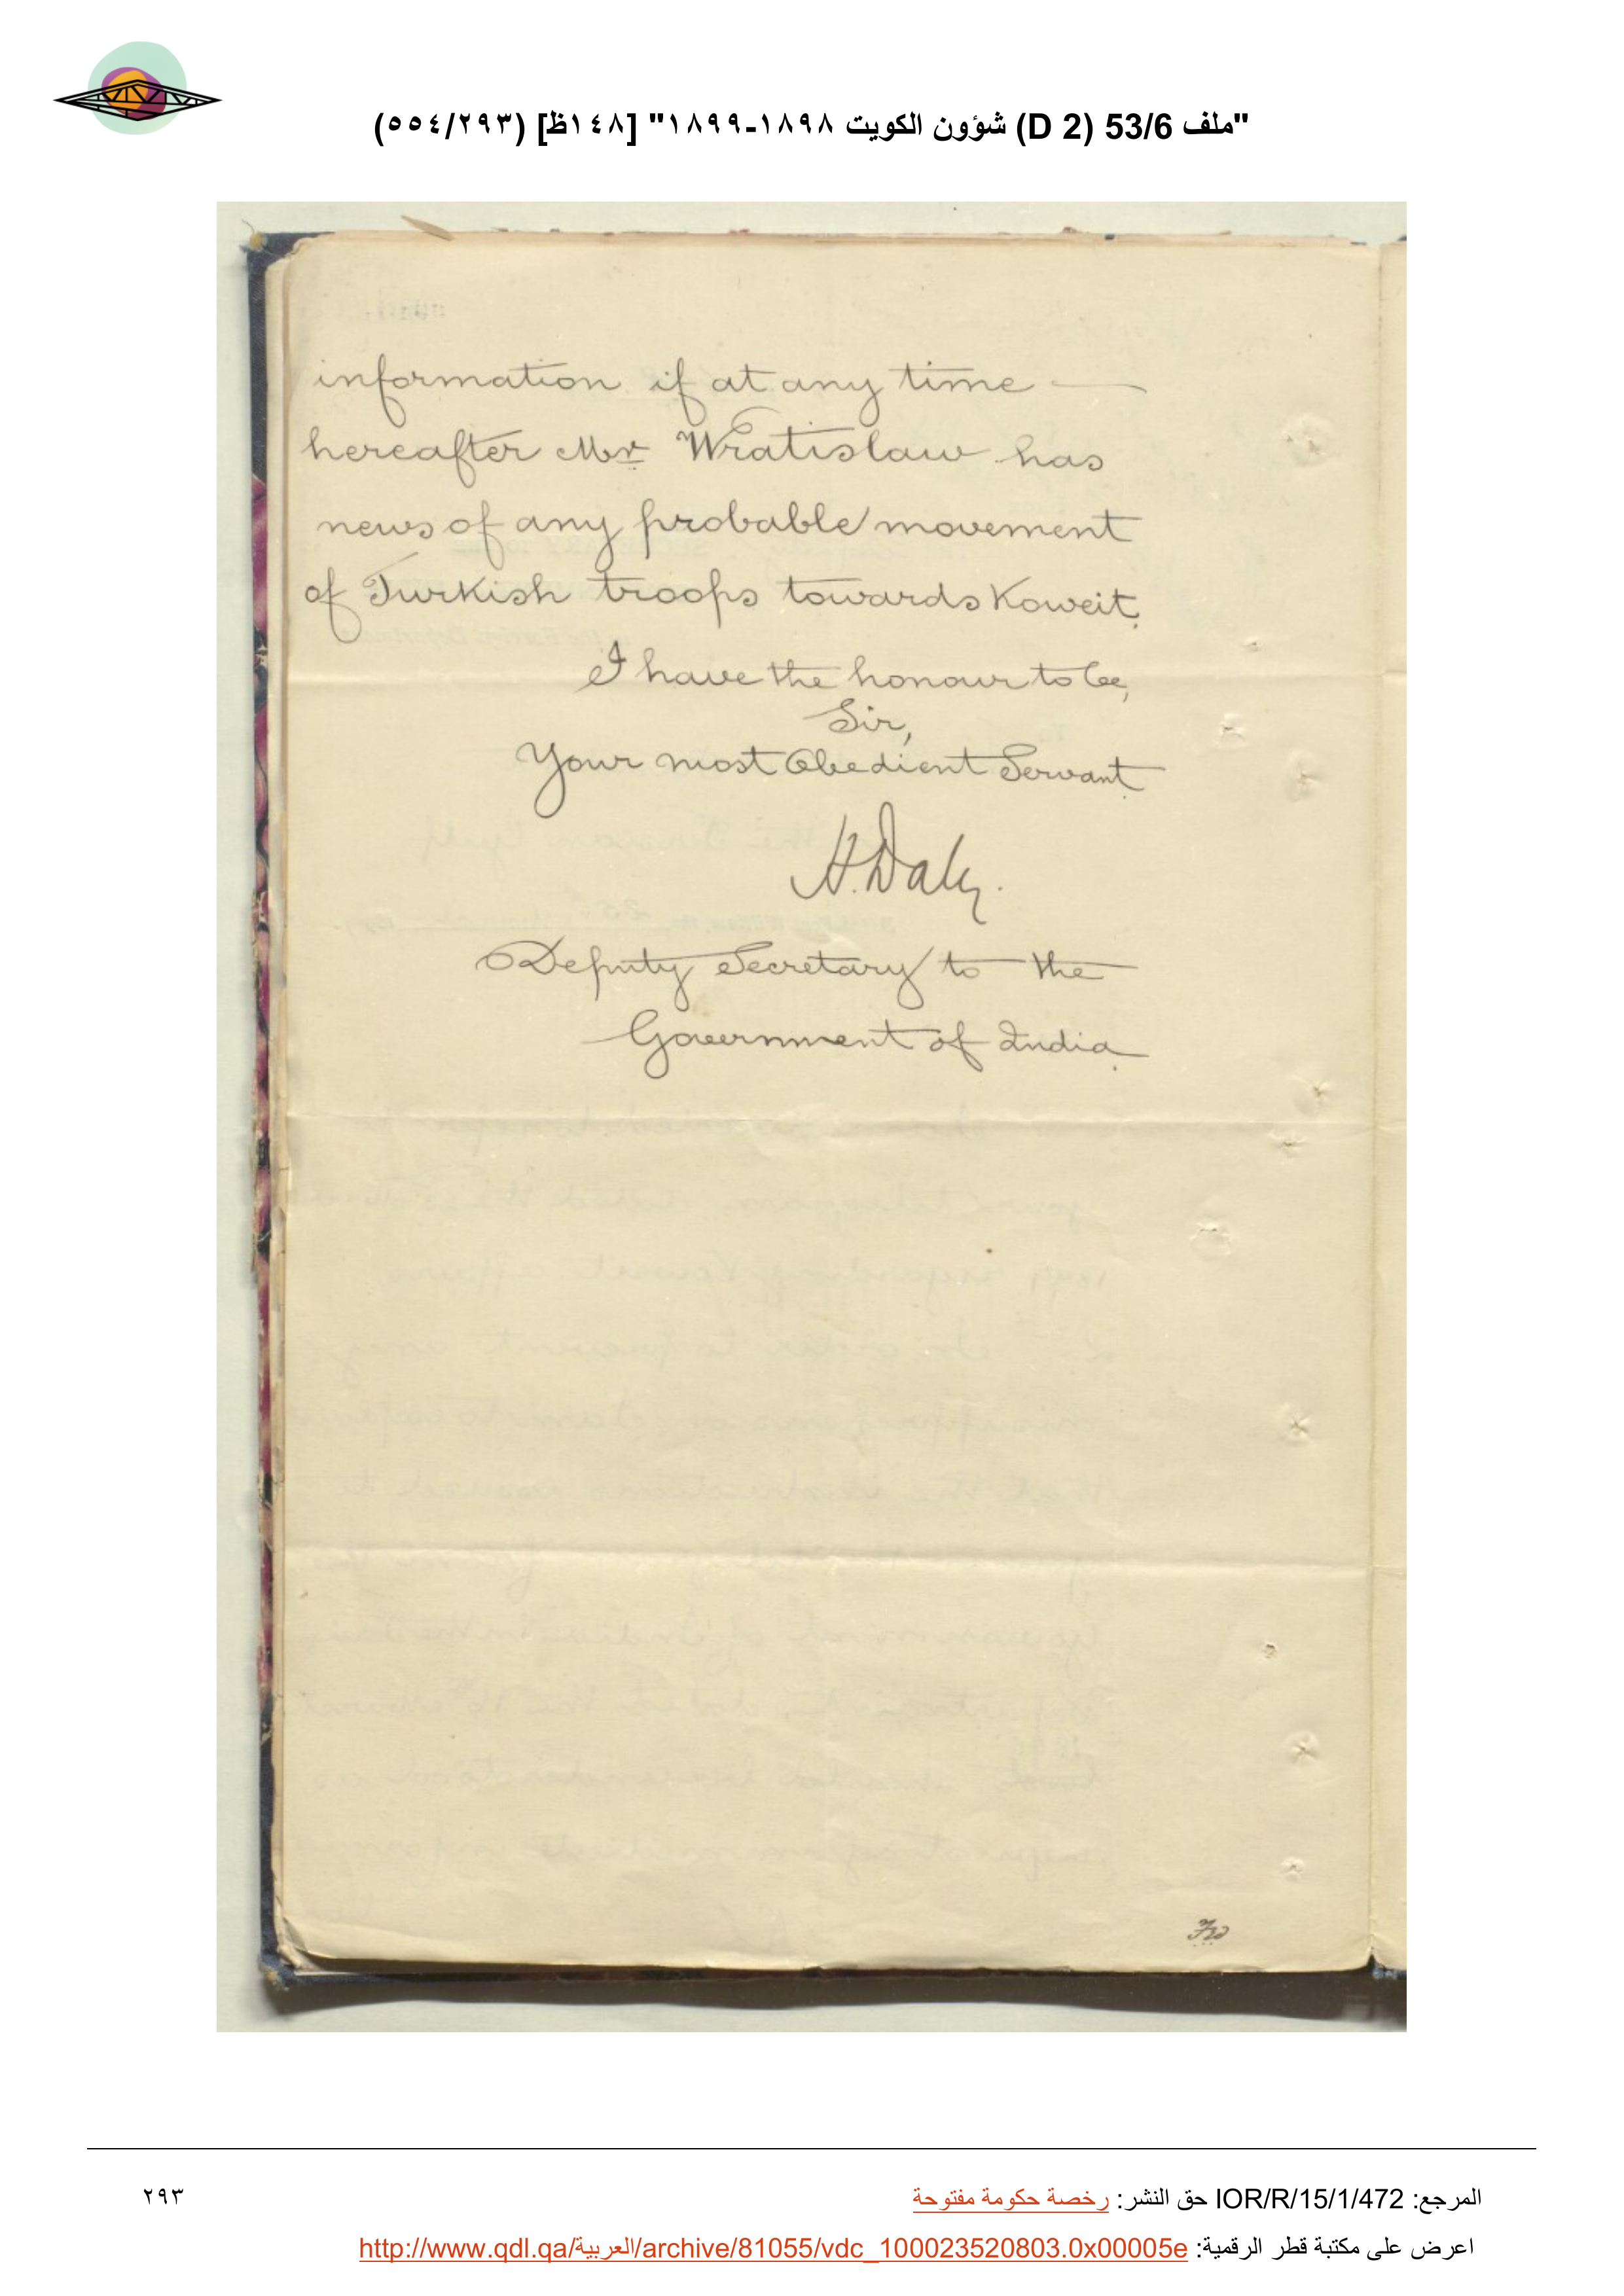 "ملف 53/6 (D 2) شؤون الكويت ١٨٩٨-١٨٩٩" [١٤٨ظ] (٥٥٤/٢٩٣)
information if at any time —
hereafter Mr Wratislaw has
news of any probable movement
of Turkish troops towards Koweit.
I have the honour to be,
Sir,
Your most Obedient Servant
H. Daly.
Deputy Secretary to the
Government of India
المرجع: IOR/R/15/1/472 حق النشر: رخصة حكومة مفتوحة
٢٩٣
اعرض على مكتبة قطر الرقمية: http://www.qdl.qa/العربية/archive/81055/vdc_100023520803.0x00005e